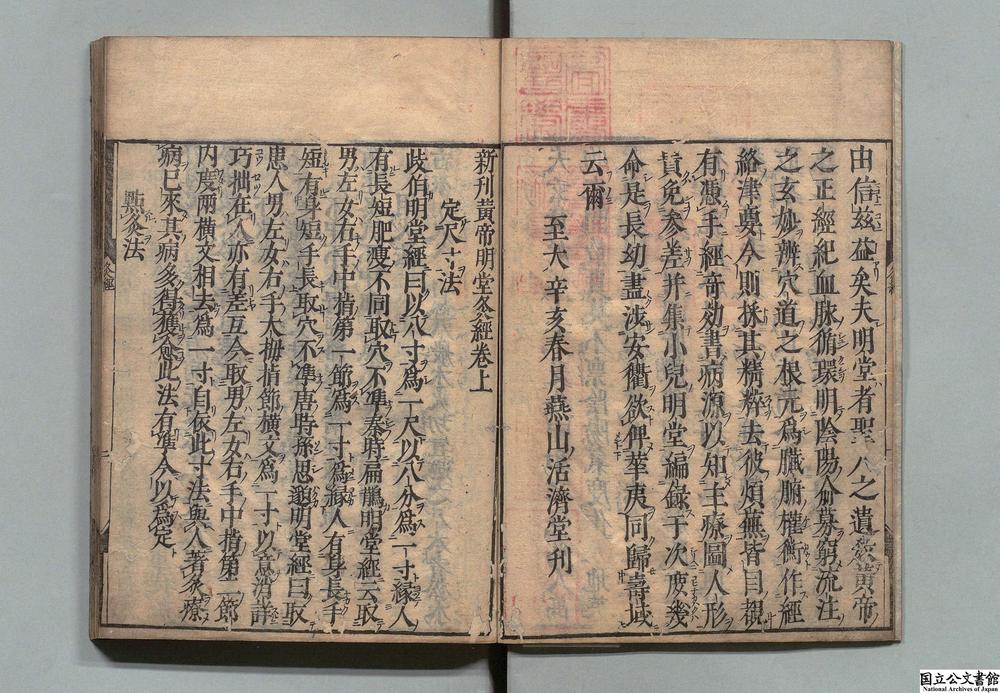 由信茲益矣夫明堂者聖人之遺黃帝
之正經紀血脉循環明陰陽俞募窮流注
之玄妙辨穴道之根元爲臟腑權衡作經
絡津要今則採其精粹去彼煩蕪皆目覩
有憑手經奇効書病源以知主療圖人形
貴免參差并集小兒明堂編錄于次庻幾
命是長幼盡涉安衢欲俾華夷同歸壽域
云爾
至大辛亥春月燕山活濟堂刊
新刋黃帝明堂灸經卷上
定尺寸法
歧伯明堂經曰以八寸爲一尺以八分爲一寸緣人
有長短肥瘦不同取穴不準秦時扁鵲明堂經云取
男左女右手中指第一節爲一寸爲緣人有身長手
短有身短手長取穴不準唐時孫思邈明堂經曰取
患人男左女右手大拇指節橫文爲一寸以意消詳
巧拙在人亦有差互今取男左女右手中指第二節
内度兩橫文相去爲一寸自依此寸法與人著灸療
病已來其病多得獲愈此法有準今以爲定
點灸法
灸經
国立公文書館
National Archives of Japan